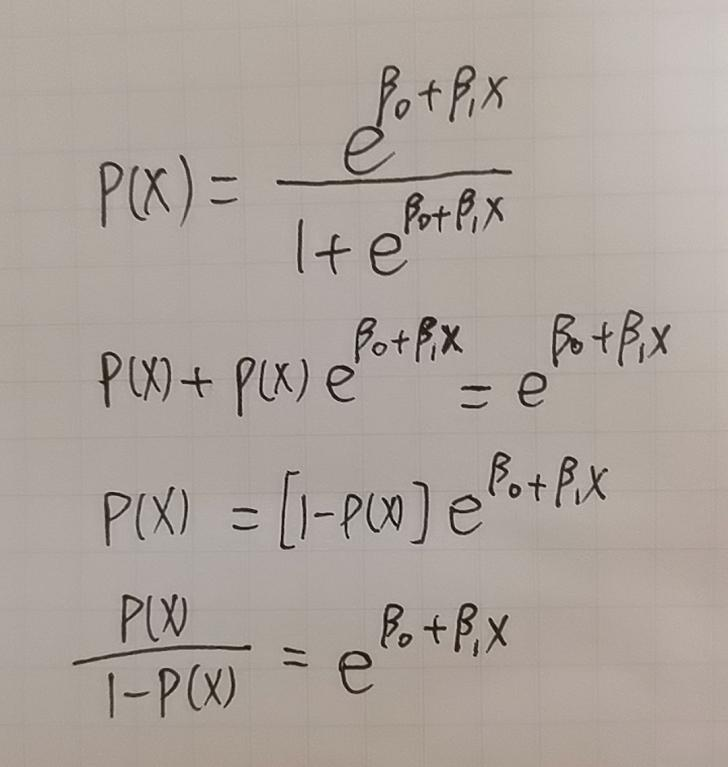 P(X) = \frac{e^{β₀+β₁X}}{1+e^{β₀+β₁X}}
P(X) + P(X) e^{β₀+β₁X} = e^{β₀+β₁X}
P(X) = [1-P(X)] e^{β₀+β₁X}
\frac{P(X)}{1-P(X)} = e^{β₀+β₁X}